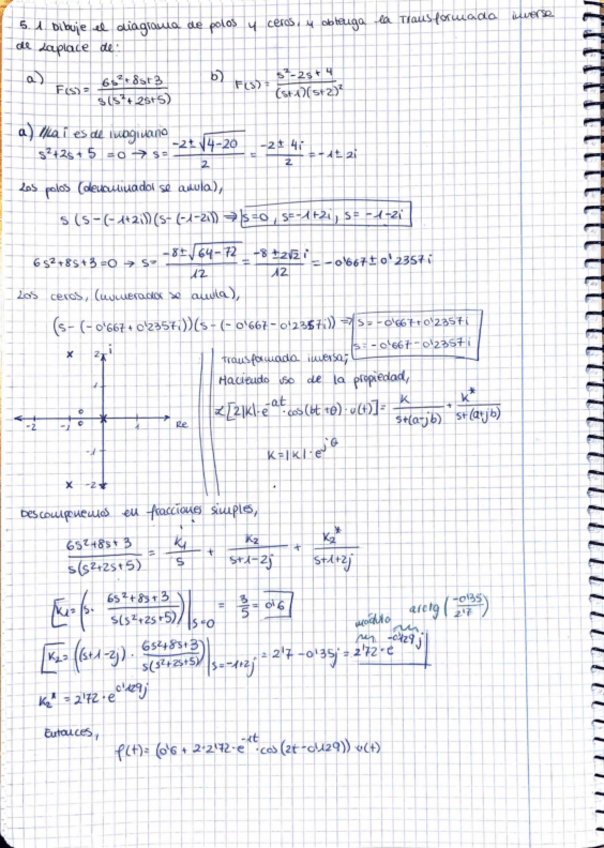 5.1. Dibuje el diagrama de polos y ceros, y obtenga la transformada inversa
de Laplace de:
a) F(s) = (6s²+8s+3)/(s(s²+2s+5)) b) F(s) = (s²-2s+4)/((s+1)(s+2)²)
a) i es de imaginario
s²+2s+5 = 0 → s = (-2±√(4-20))/2 = (-2±4i)/2 = -1±2i
Los polos (denominador se anula),
s (s-(-1+2i))(s-(-1-2i)) ⇒ s=0, s=-1+2i, s=-1-2i
6s²+8s+3=0 → s = (-8±√(64-72))/12 = (-8±2√2 i)/12 = -0'667±0'2357i
Los ceros, (numerador se anula),
(s-(-0'667+0'2357i))(s-(-0'667-0'2357i)) ⇒ s=-0'667+0'2357i
s=-0'667-0'2357i
x 2 i
1
-2 -1 1 Re
-1
x -2
Transformada inversa;
Haciendo uso de la propiedad,
ℒ[2|K|·e^-at·cos(bt+θ)·u(t)] = K/(s+(a-jb)) + K*/(s+(a+jb))
K=|K|·e^jθ
Descomponemos en fracciones simples,
(6s²+8s+3)/(s(s²+2s+5)) = K₁/s + K₂/(s+1-2j) + K₂*/(s+1+2j)
K₁ = (s·(6s²+8s+3)/(s(s²+2s+5)))|s=0 = 3/5 = 0'6
módulo arctg(-0'35/2'7)
K₂ = ((s+1-2j)·(6s²+8s+3)/(s(s²+2s+5)))|s=-1+2j = 2'7-0'35j = 2'72·e^-0'129j
K₂* = 2'72·e^0'129j
Entonces,
f(t) = (0'6 + 2·2'72·e^-1t·cos(2t-0'129)) u(t)